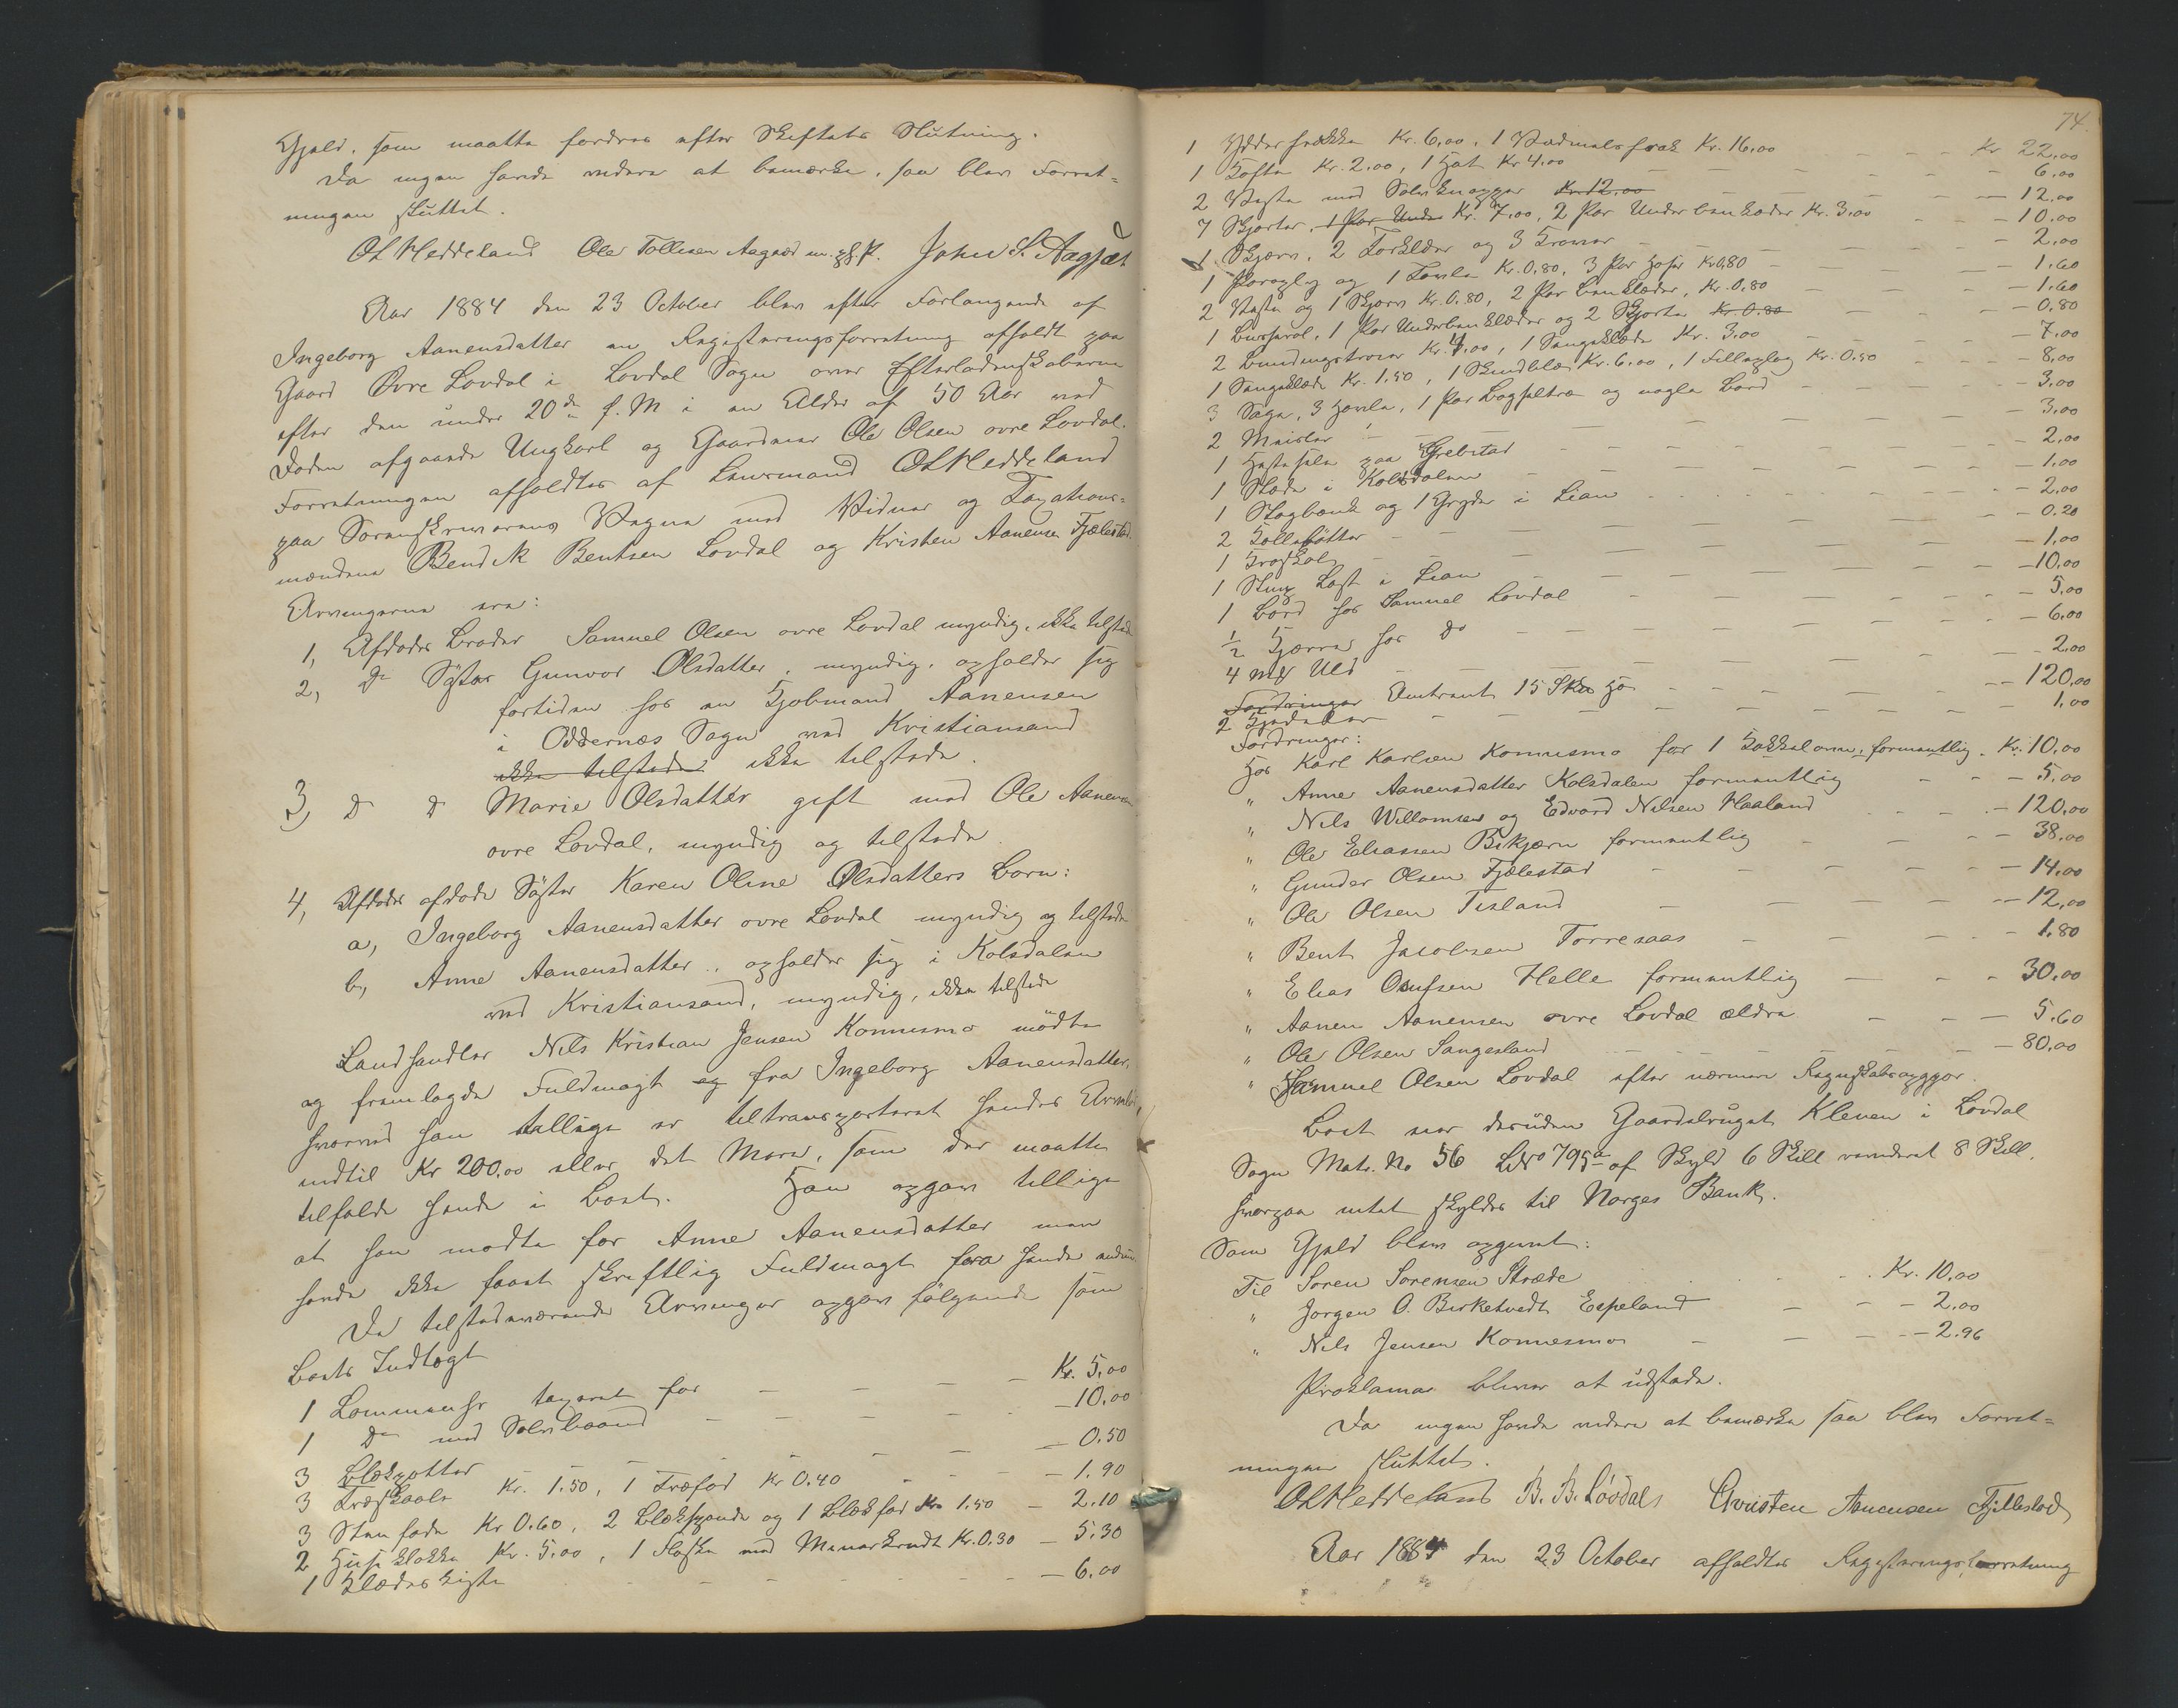 Gjæld, som maatte fordres efter Skiftets Slutning.
Da ingen havde videre at bemærke, saa blev Forret-
ningen sluttet.
OLHeddeland Ole Tollisen Aagsæd m. p. P. John S. Aagsæt
Aar 1884 den 23 October blev efter Forlangende af
Ingeborg Aanensdatter en Registreringsforretning afholdt paa
Gaard Øvre Lovdal i Lovdal Sogn over Efterladenskaberne
efter den under 20de f. M i en Alder af 50 Aar ved
Døden afgaaede Ungkarl og Gaardmand Ole Olsen øvre Lovdal.
Forretningen afholdtes af Lensmand OLHeddeland
paa Sorenskriverens Vegne med Vidner og Taxations-
mændene Bendik Bentsen Lovdal og Kristen Aanensen Fjælestad.
Arvingerne ere:
1, Afdødes Broder Samuel Olsen øvre Lovdal myndig, ikke tilstede
2, Do Søster Gunvor Olsdatter, myndig, opholder sig
fortiden hos en Kjøbmand Aanensen
i Oddernæs Sogn ved Kristiansand
ikke tilstede ikke tilstede.
3, D D Marie Olsdatter gift med Ole Aanensen
øvre Lovdal, myndig og tilstede
4, Afdødes afdøde Søster Karen Oline Olsdatters Børn:
a, Ingeborg Aanensdatter øvre Lovdal myndig og tilstede
b, Anne Aanensdatter, opholder sig i Kolsdalen
ved Kristiansand, myndig, ikke tilstede
Landhandler Nils Kristian Jensen Konnesmo mødte
og fremlagde Fuldmagt og fra Ingeborg Aanensdatter,
hvorved han tillige er tiltransporteret hendes Arvelod,
indtil Kr 200,00 eller det Mere, som der maatte
tilfalde hende i Boet. Han opgav tillige
at han mødte for Anne Aanensdatter men
havde ikke faaet skriftlig Fuldmagt fra hende endnu
De tilstedeværende Arvinger opgav følgende som
Boets Indtægt
1 Lommeuhr taxeret for Kr. 5,00
1 Do med Sølvbaand 10,00
3 Blækpotter 0,50
3 Træskaale Kr. 1.50, 1 Træfad Kr 0.40 1.90
3 Stenfade Kr 0.60, 2 Blikspande og 1 Blikfad Kr 1.50 2.10
2 Husklokke Kr. 5,00, 1 Flaske med Kr. 0.30 5.30
1 Klædeskiste 6.00
74.
1 Yderfrakke Kr. 6,00, 1 Vadmelsfrak Kr. 16,00 Kr 22,00
1 Kofte Kr. 2.00, 1 Hat Kr 4.00 6.00
2 Veste med Sølvknapper Kr. 12.00 12,00
7 Skjorter, 1 Par Under Kr. 7,00, 2 Par Underbenklæder Kr. 3,00 10,00
1 Skjærv, 2 Forklær og 3 Kraver 2,00
1 Paraply og 1 Kr. 0,80, 3 Par Hoser Kr 0,80 1.60
2 Veste og 1 Skjærv Kr. 0.80, 2 Par Benklæder, Kr. 0.80 1.60
1 , 1 Par Underbenklæder og 2 Skjorter Kr. 0.80 0.80
2 Kr. 4,00, 1 Sengeklæde Kr. 3,00 7,00
1 Sengeklæde Kr. 1.50, 1 Skindblæ Kr. 6,00, 1 Kr. 0.50 8,00
3 Sage, 3 Høvle, 1 Par og nogle Bord 3,00
2 Meisler 3,00
1 Hestesele paa Grebstad 2,00
1 Slæde i Kolsdalen 1,00
1 Slagbænk og 1 Gryde i Lian 2,00
2 0.20
1 1,00
1 i Lian 10,00
1 Bord hos Samuel Lovdal 5,00
½ Kjærre hos Do 6,00
4 mk Uld 2.00
Fordringer Omtrent 15 Sk℔ Hø 120,00
2 1,00
Fordringer:
Hos Karl Karlsen Konnesmo for 1 Kakkelovn, formentlig. Kr. 10,00
" Anne Aanensdatter Kolsdalen formentlig 5,00
" Nils Willomsen og Edvard Nilsen Haaland 120,00
" Ole Eliassen Bikjærn formentlig 38,00
" Gunder Olsen Fjælestad 14,00
" Ole Olsen Tisland 12,00
" Bent Jacobsen Torresaas 1,80
" Elias Olufsen Helle formentlig 30,00
" Aanen Aanensen øvre Lovdal ældre 5.60
" Ole Olsen Sangesland 80,00
" Samuel Olsen Lovdal efter nærmere Regnskabsopgjør.
Boet eier desuden Gaardsbruget Kleven i Lovdal
Sogn Matr. No 56 LNo 795a af Skyld 6 Skill revideret 8 Skill.
hvorpaa intet skyldes til Norges Bank.
Som Gjæld blev opgivet:
Til Søren Sørensen Stræde Kr. 10,00
" Jørgen O. Birketvedt Espeland 2.00
" Nils Jensen Konnesmo 2.96
Proklama bliver at udstede.
Da ingen havde videre at bemærke saa blev Forret-
ningen sluttet.
OLHeddeland B. B. Løvdal Christen Aanensen Fjellestad
Aar 1884 den 23 October afholdtes Registreringsforretning